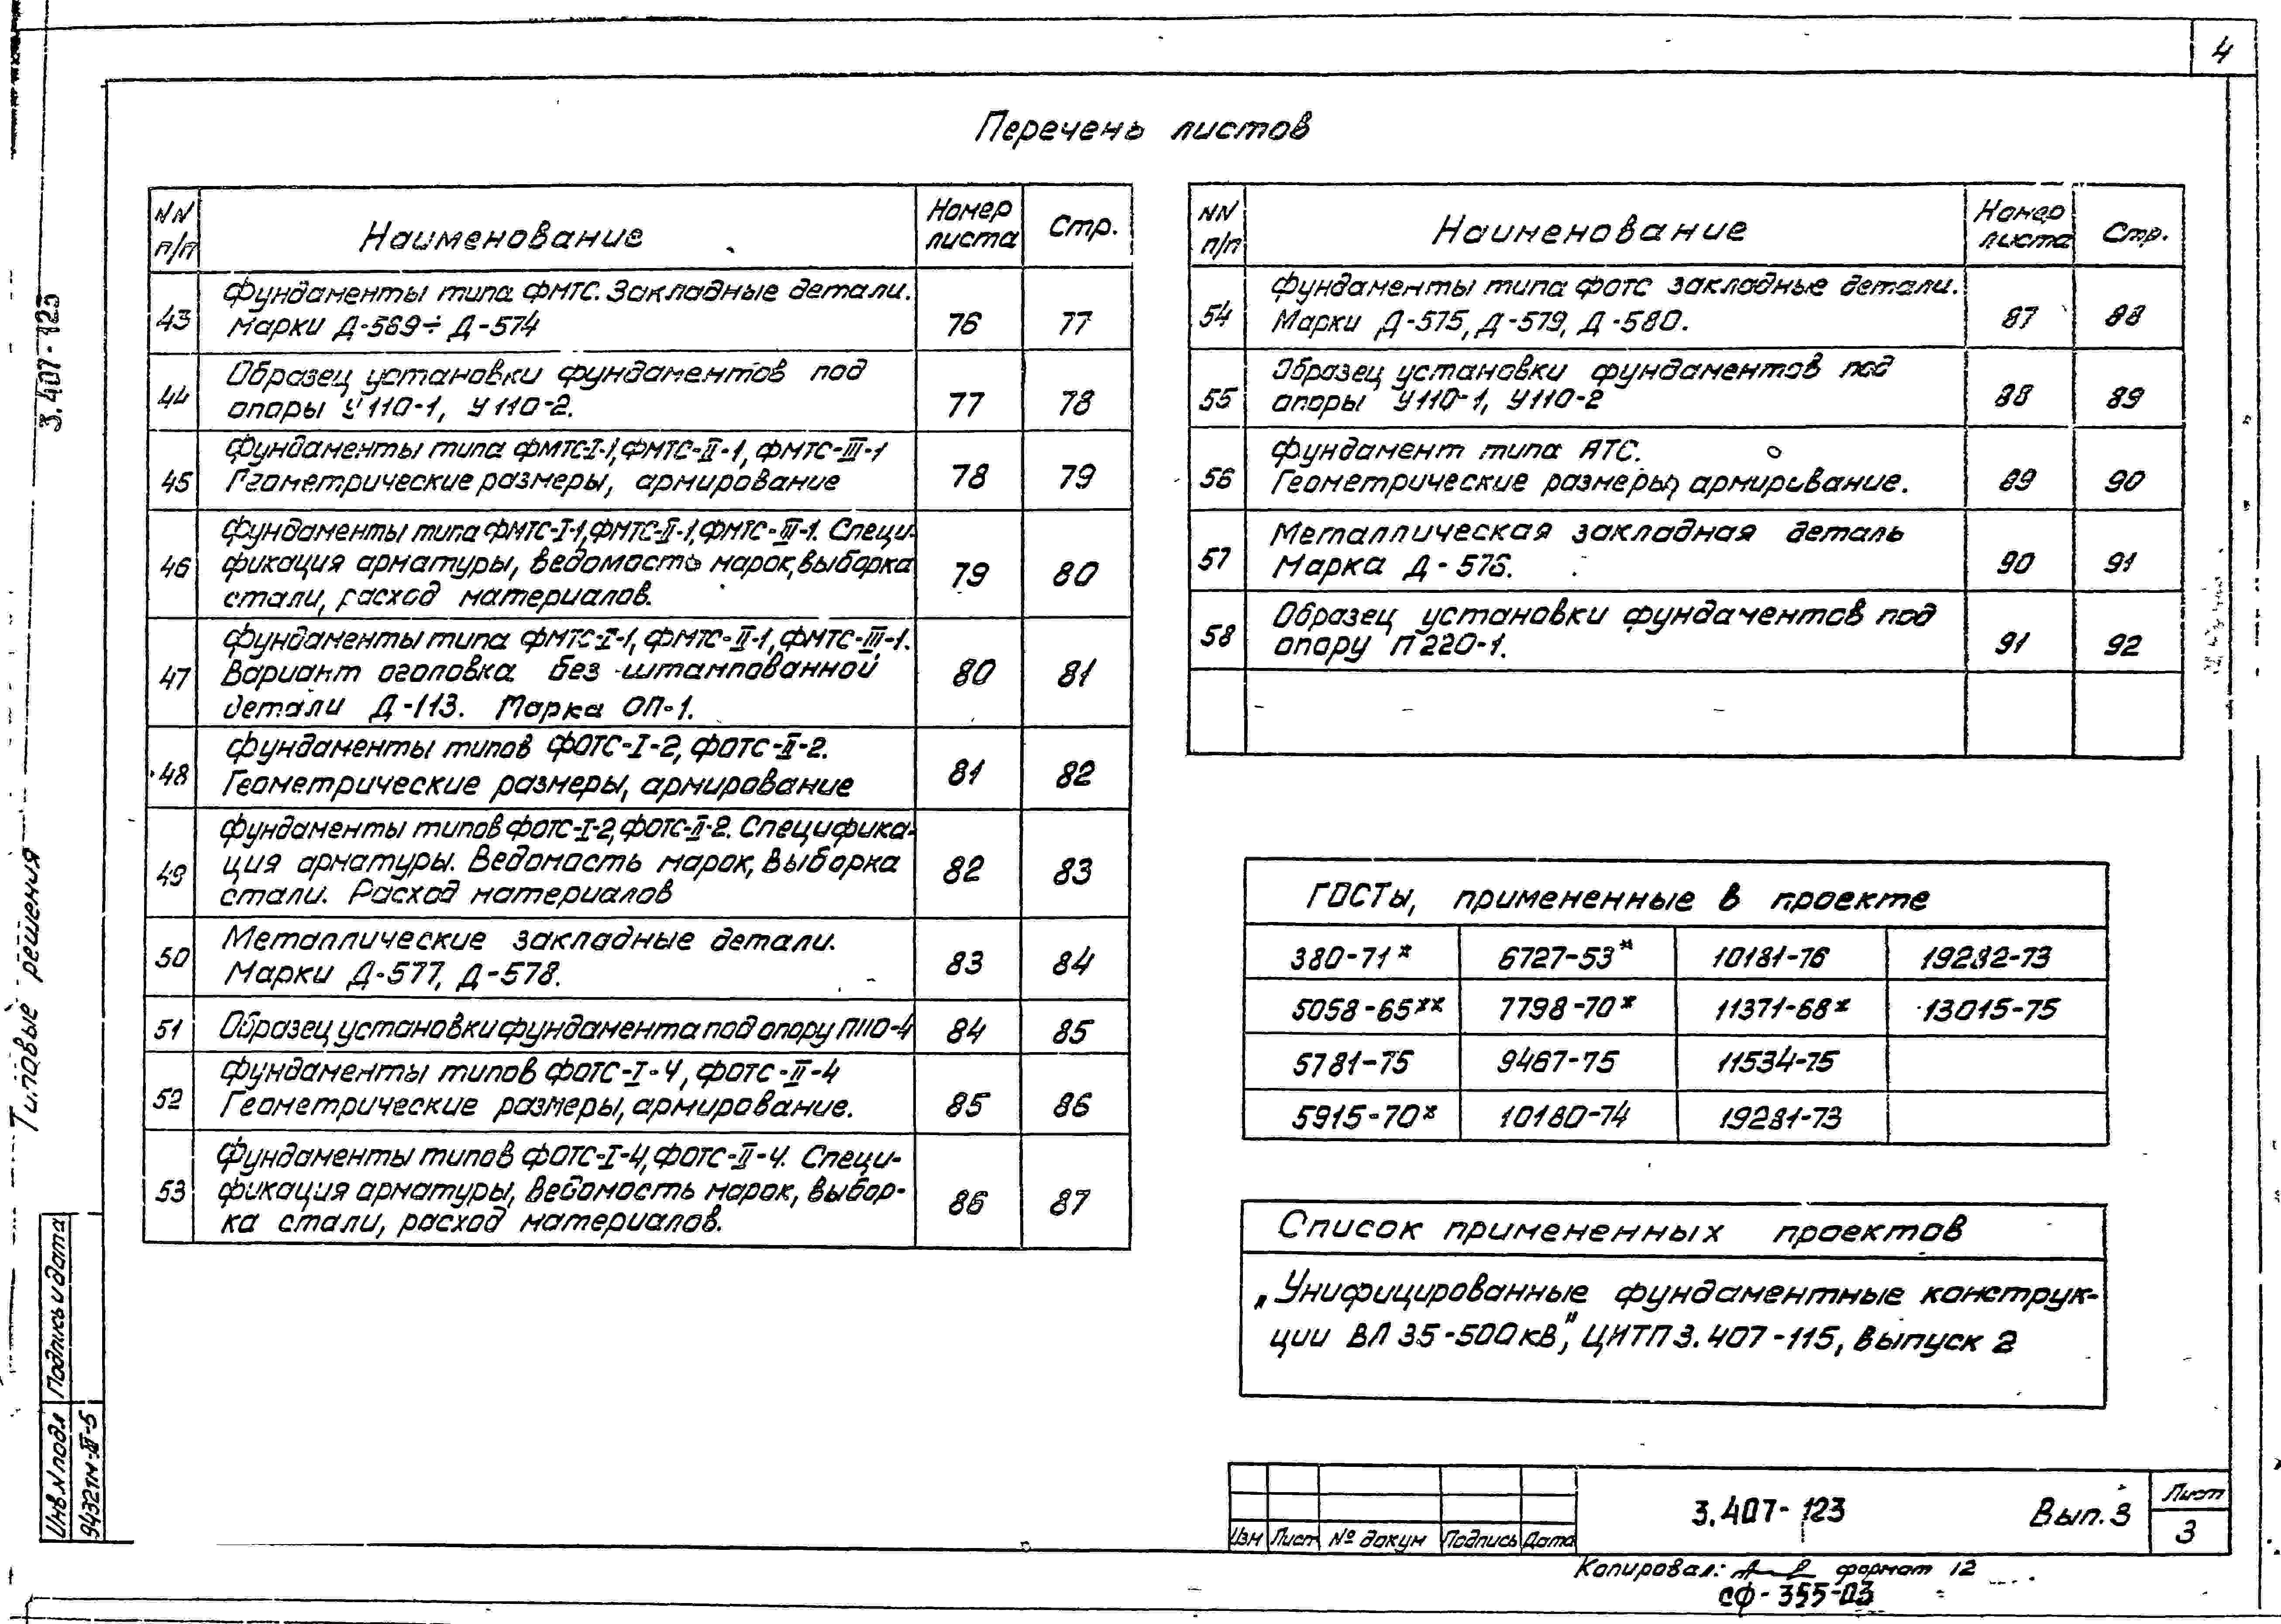 4
Перечень листов
NN п/п
Наименование
Номер листа
Стр.
43
Фундаменты типа ФМТС. Закладные детали.
Марки Д-569÷Д-574
76
77
44
Образец установки фундаментов под
опоры У110-1, У110-2.
77
78
45
Фундаменты типа ФМТС-I-1, ФМТС-II-1, ФМТС-III-1
Геометрические размеры, армирование
78
79
46
Фундаменты типа ФМТС-I-1, ФМТС-II-1, ФМТС-III-1. Специ-
фикация арматуры, ведомость марок, выборка
стали, расход материалов.
79
80
47
Фундаменты типа ФМТС-I-1, ФМТС-II-1, ФМТС-III-1.
Вариант оголовка без штампованной
детали Д-113. Марка ОП-1.
80
81
48
Фундаменты типов ФОТС-I-2, ФОТС-II-2.
Геометрические размеры, армирование
81
82
49
Фундаменты типов ФОТС-I-2, ФОТС-II-2. Специфика-
ция арматуры. Ведомость марок, выборка
стали. Расход материалов
82
83
50
Металлические закладные детали.
Марки Д-577, Д-578.
83
84
51
Образец установки фундамента под опору П110-4
84
85
52
Фундаменты типов ФОТС-I-4, ФОТС-II-4
Геометрические размеры, армирование.
85
86
53
Фундаменты типов ФОТС-I-4, ФОТС-II-4. Специ-
фикация арматуры, ведомость марок, выбор-
ка стали, расход материалов.
86
87
NN п/п
Наименование
Номер листа
Стр.
54
Фундаменты типа ФОТС закладные детали.
Марки Д-575, Д-579, Д-580.
87
88
55
Образец установки фундаментов под
опоры У110-1, У110-2
88
89
56
Фундамент типа АТС.
Геометрические размеры, армирование.
89
90
57
Металлическая закладная деталь
Марка Д-576.
90
91
58
Образец установки фундаментов под
опору П220-1.
91
92
ГОСТы, примененные в проекте
380-71* 6727-53* 10181-76 19282-73
5058-65** 7798-70* 11371-68* 13015-75
5781-75 9467-75 11534-75
5915-70* 10180-74 19281-73
Список примененных проектов
„Унифицированные фундаментные конструк-
ции ВЛ 35-500кВ", ЦИТП 3.407-115, выпуск 2
3.407-123
Вып. 3
Лист
3
Изм Лист № докум Подпись Дата
Копировал: формат 12
СФ-355-03
3.407-123
Типовые решения
Подпись и дата
Инв.N подл
9432тм-III-5